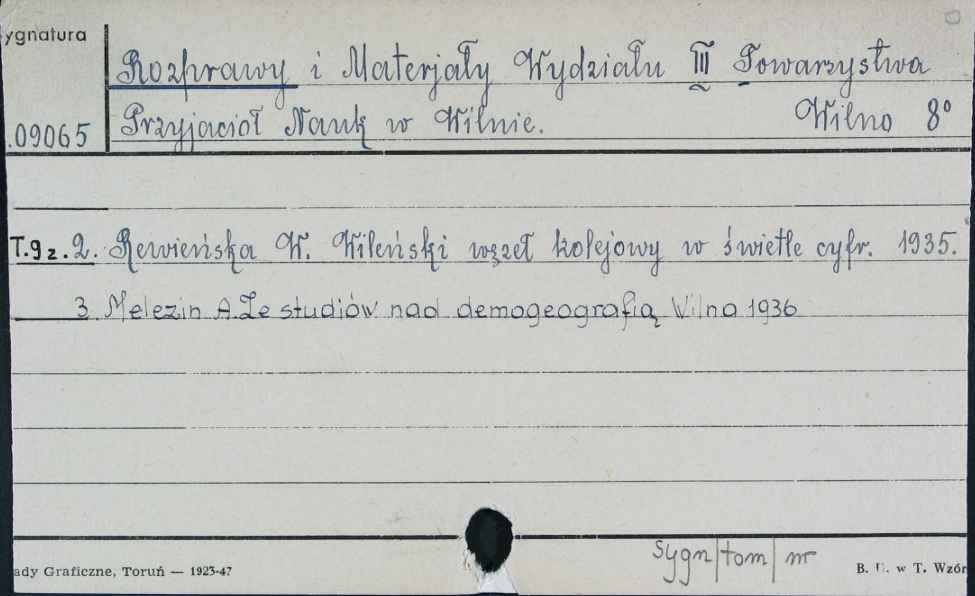 ygnatura
Rozprawy i Materjały Wydziału III Towarzystwa
.09065 Przyjaciół Nauk w Wilnie. Wilno 8°
T.9 z. 2. Rewieńska W. Wileński węzeł kolejowy w świetle cyfr. 1935.
3. Melezin A. Ze studiów nad demogeografią Wilna 1936
sygn | tom | nr
ady Graficzne, Toruń — 1923-47 B. U. w T. Wzór